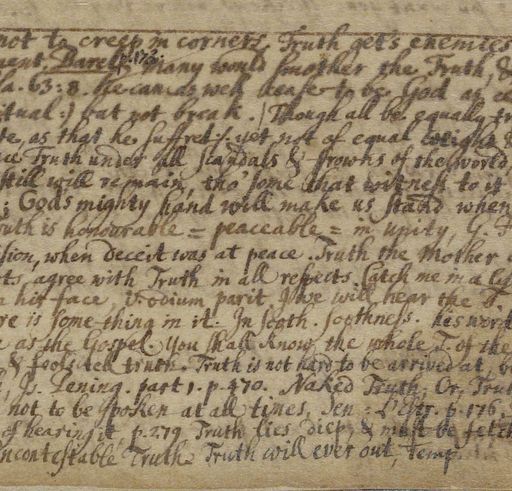 not to creep in corners, Truth get's enemies
ment, Barel p.173. many would smother the Truth, &
la. 63:8. he can as well cease to be God as
itual:) but not break. / Though all be equally tr
te, as that he suffred:/ yet not of equal weight &
ce Truth under all scandals & frowns of the world
still will remain, tho' some that witness to it
; Gods mighty hand will make us stand when
ruth is honourable = peaceable = in unity G. F
sion, when deceit was at peace. Truth the Mother
ts agree with Truth in all respects. Catch me in a ly
n his face, V: odium parit / we will hear the
re is some-thing in it. In sooth. soothness. his word
e as the Gospel you shall know the whole T of the
& fools tell truth. Truth is not hard to be arrived at,
, Is. Pening. part 1. p. 470. Naked Truth. Or, Trut
not to be spoken at all times, Sen: p. 176,
of hearing it, p. 279 Truth lies deep & must be fetch
Incontestable Truth Truth will ever out, Temp.